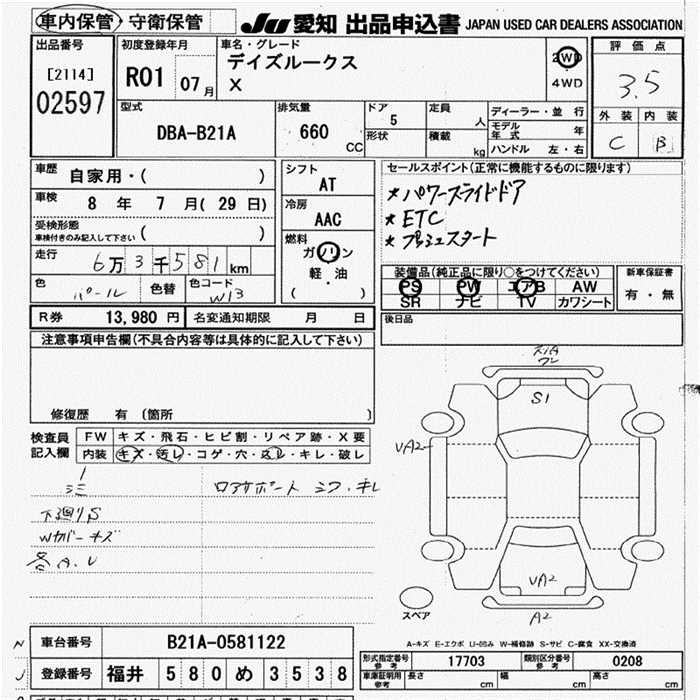 車内保管・守衛保管
JU 愛知 出品申込書 JAPAN USED CAR DEALERS ASSOCIATION
出品番号
[2114]
02597
初度登録年月
R01 07月
車名・グレード
デイズルークス
X
2WD
4WD
評価点
3.5
外装 内装
C B
型式
DBA-B21A
排気量
660 CC
ドア 5
形状
定員 人
積載 kg
ディーラー・並行
モデル年式 年
ハンドル 左・右
車歴 自家用・( )
車検 8 年 7 月( 29 日)
受検形態
車検付きのみ記入して下さい ( )
走行 6万3千581km
色 パール 色替 色コード W13
シフト
AT
冷房
AAC
燃料
ガソリン
軽・油
( )
セールスポイント(正常に機能するものに限ります)
★パワースライドドア
★ETC
★プッシュスタート
装備品(純正品に限り○をつけてください)
PS PW エアB AW
SR ナビ TV カワシート
新車保証書
有・無
R券 13,980円 名変通知期限 月 日
後日品
注意事項申告欄(不具合内容等は具体的に記入して下さい)
修復歴 有(箇所 )
検査員記入欄
FW キズ・飛石・ヒビ割・リペア跡・X要
内装 キズ・汚レ・コゲ・穴・凹レ・キレ・破レ
下廻りS
Wカバーキズ
各A.U
S1
VA2
VA2
A2
スペア
A-キズ E-エクボ U-凹み W-補修跡 S-サビ C-腐食 XX-交換済
車台番号 B21A-0581122
登録番号 福井 580 め 3538
形式指定番号 参考 17703 類別区分番号 参考 0208
車庫証明用 参考 長さ 幅 高さ